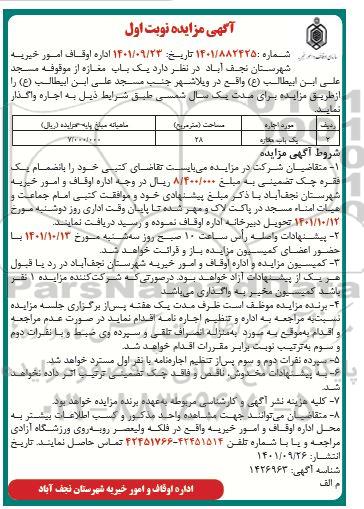 آگهی مزایده نوبت اول
شماره :۱۴۰۱/۸۸۲۴۲۵ تاریخ: ۱۴۰۱/۰۹/۲۳ اداره اوقاف امور خیریه
شهرستان نجف آباد در نظر دارد یک باب مغازه از موقوفه مسجد
علی ابن ابیطالب (ع) واقع در ویلاشهر جنب مسجد علی ابن ابیطالب (ع) را
ازطریق مزایده برای مدت یک سال شمسی طبق شرایط ذیل به اجاره واگذار
نمایند.
ردیف مورد اجاره مساحت (مترمربع) ماهیانه مبلغ پایه مزایده (ریال)
۲ یک باب مغازه ۲۸ ۷/۰۰۰/۰۰۰
شروط آگهی مزایده
۱- متقاضیان شرکت در مزایده می‌بایست تقاضای کتبی خود را بانضمام یک
فقره چک تضمینی به مبلغ ۸/۴۰۰/۰۰۰ ریال در وجه اداره اوقاف و امور خیریه
شهرستان نجف‌آباد با ذکر مبلغ پیشنهادی خود و موافقت کتبی امام جماعت و
هیات امناء مسجد در پاکت لاک و مهر شده تا پایان وقت اداری روز دوشنبه مورخ
۱۴۰۱/۱۰/۱۲ تحویل دبیرخانه اداره اوقاف نموده و رسید دریافت نمایند.
۲- پیشنهادات واصله رأس ساعت ۱۰ صبح روز سه‌شنبه مورخ ۱۴۰۱/۱۰/۱۳ با
حضور اعضای کمیسیون مزایده باز و قرائت خواهد شد.
۳- کمیسیون مزایده و اداره اوقاف و امور خیریه شهرستان نجف‌آباد در رد یا قبول
هر یک از پیشنهادات آزاد خواهد بود. درصورتی‌که شرکت‌کننده مزایده ۱ نفر
باشد کمیسیون مخیر به واگذاری می‌باشد.
۴- برنده مزایده موظف است ظرف مدت یک هفته پس‌از برگزاری جلسه مزایده
نسبت‌به مراجعه به اداره و تنظیم اجاره نامه اقدام نماید در صورت عدم مراجعه
و اقدام به‌موقع به مورد به‌منزله انصراف تلقی و سپرده وی ضبط و با نفرات دوم
و سوم به‌ترتیب نوبت برابر مقررات اقدام خواهد شد.
۵- سپرده نفرات دوم و سوم پس‌از تنظیم اجارنامه با نفر اول مسترد خواهد شد.
۶- به پیشنهادات مخدوش، ناقص و فاقد چک تضمینی ترتیب اثر داده نخواهد
شد.
۷- کلیه هزینه نشر آگهی و کارشناسی مربوطه به‌عهده برنده مزایده خواهد بود.
۸- متقاضیان می‌توانند جهت مشاهده واحد مذکور و کسب اطلاعات بیشتر به
محل اداره اوقاف و امور خیریه واقع در فلکه ولیعصر روبه‌روی ورزشگاه آزادی
مراجعه و یا با شماره تلفن ۴۲۴۵۱۵۱۴-۴۲۴۵۱۷۶۶ تماس حاصل نمایند. تاریخ
انتشار: ۱۴۰۱/۰۹/۲۶
شناسه آگهی: ۱۴۲۶۹۶۳
م الف
اداره اوقاف و امور خیریه شهرستان نجف آباد